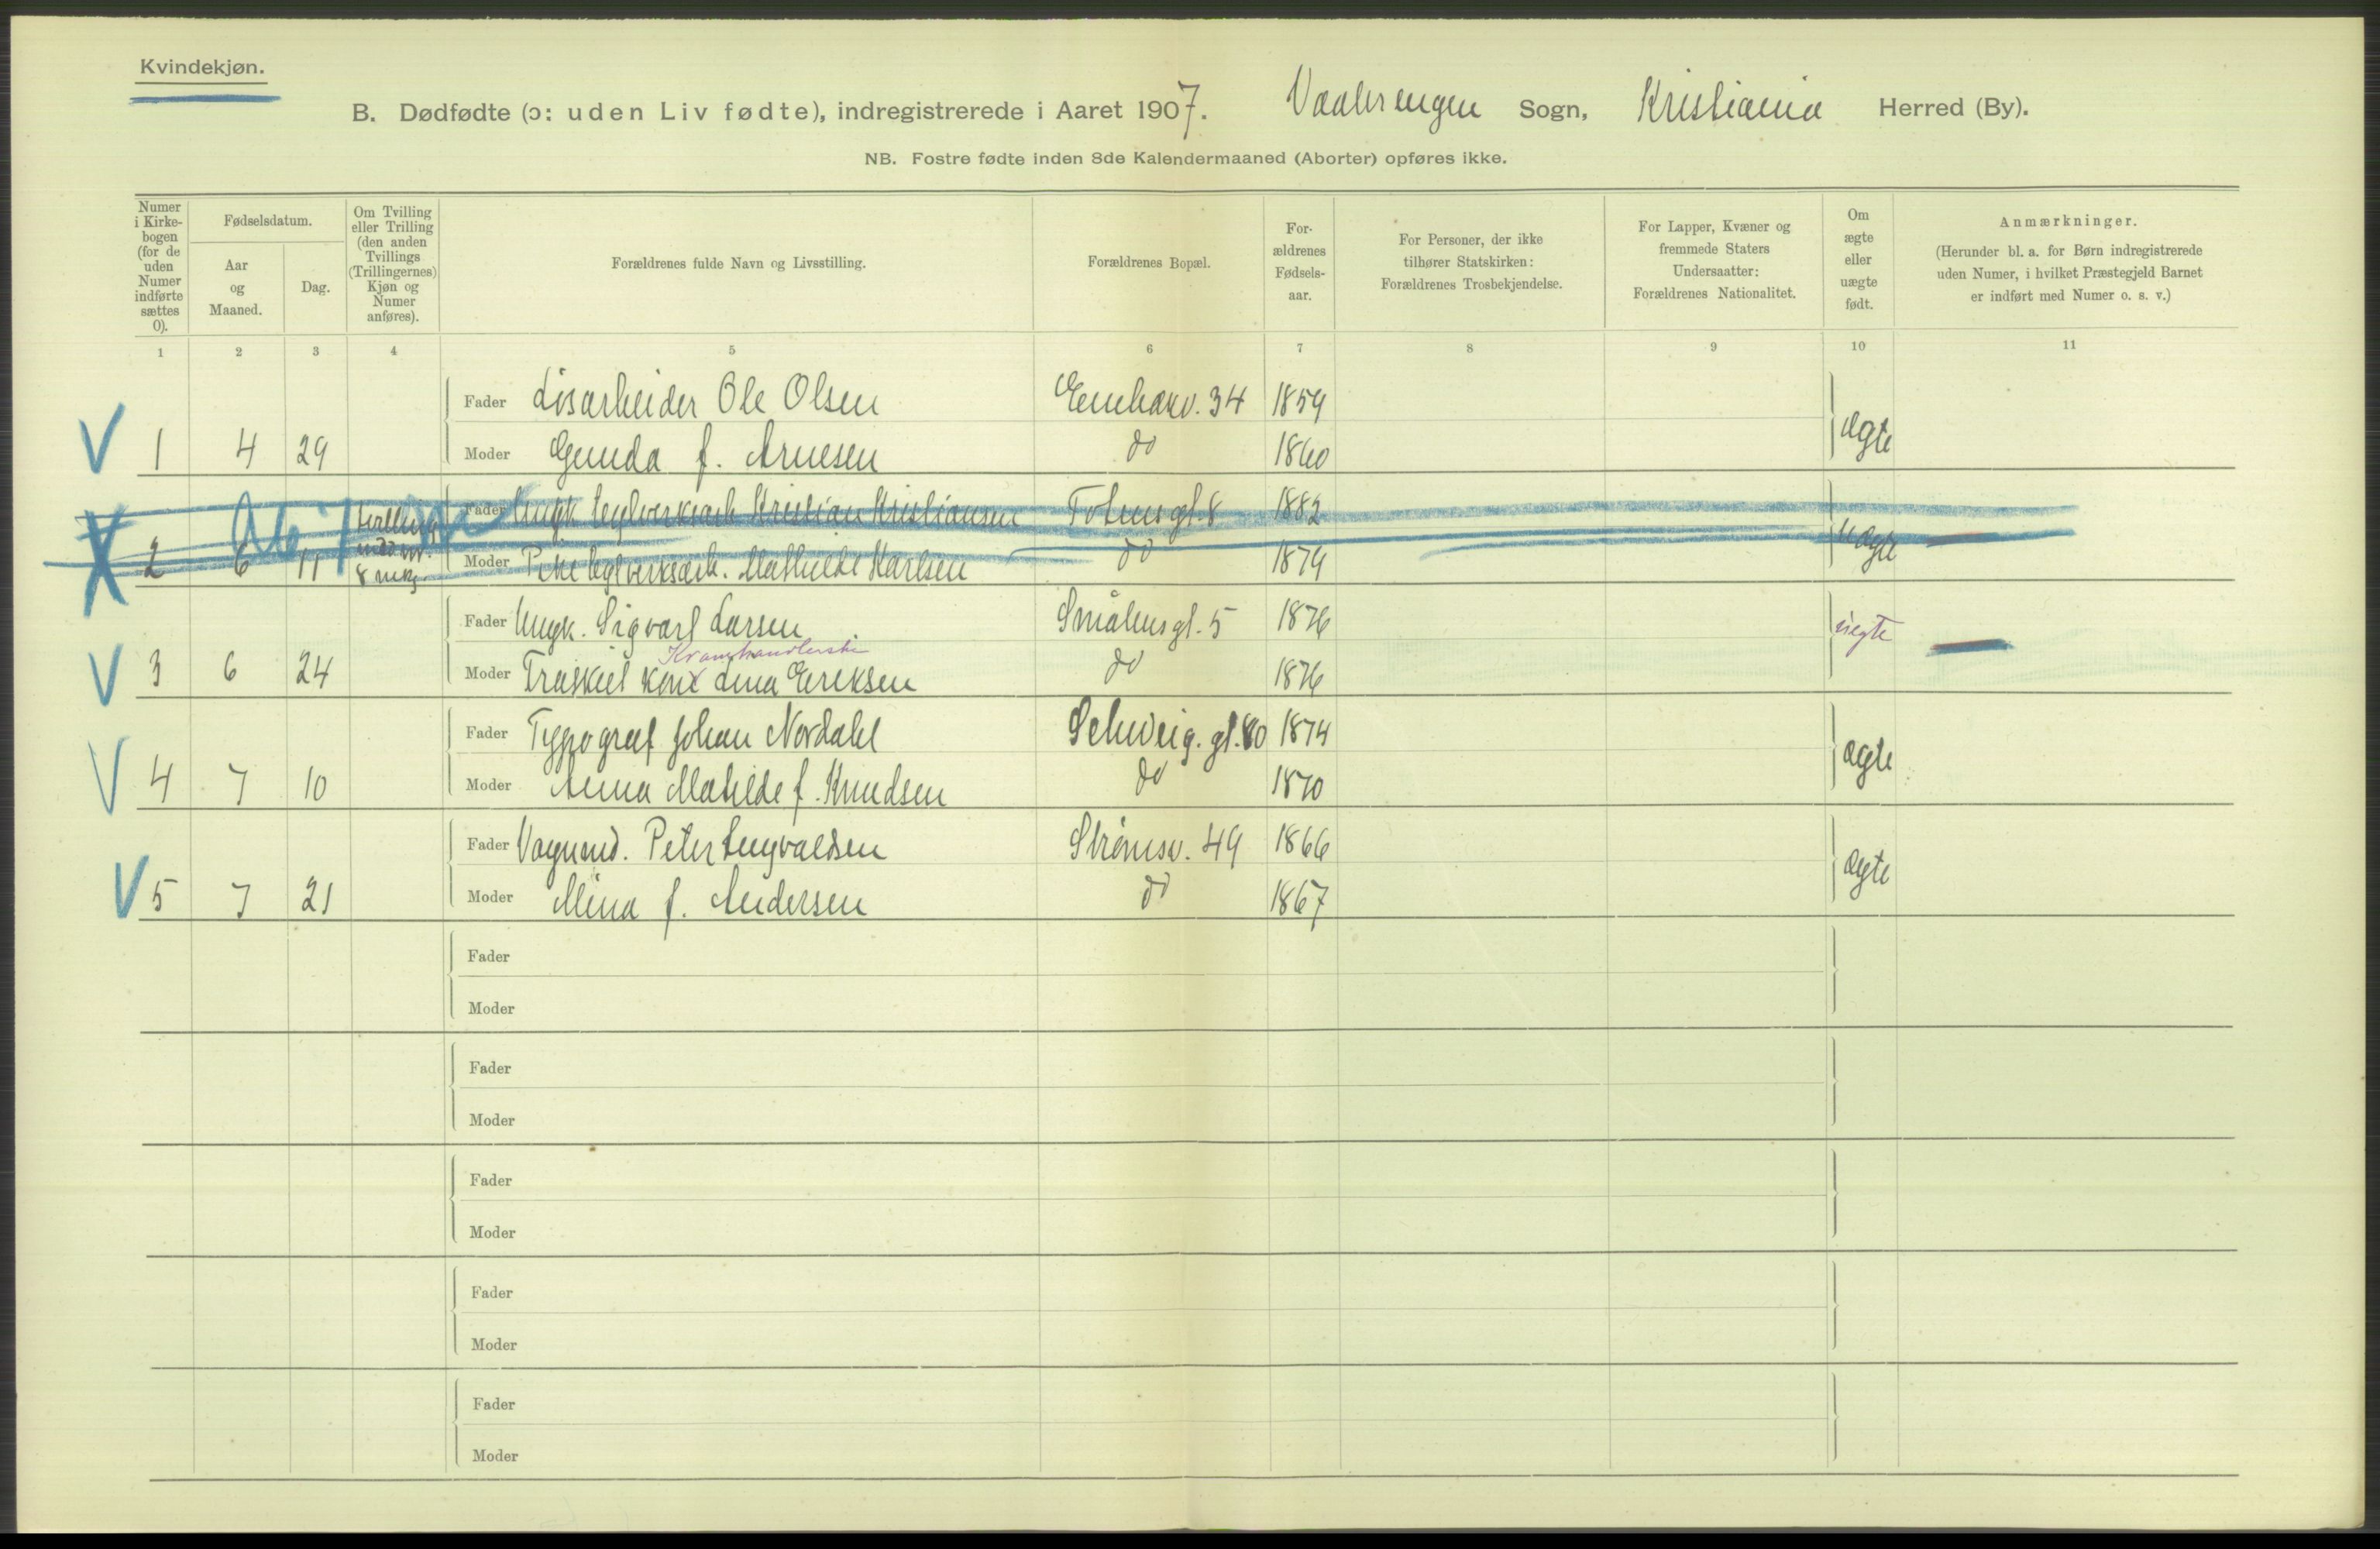 Kvindekjøn.
B. Dødfødte (ɔ: uden Liv fødte), indregistrerede i Aaret 1907. Vaalerengen Sogn, Kristiania Herred (By).
NB. Fostre fødte inden 8de Kalendermaaned (Aborter) opføres ikke.
Numer i Kirkebogen (for de uden Numer indførte sættes 0).
Fødselsdatum.
Aar og Maaned.
Dag.
Om Tvilling eller Trilling (den anden Tvillings (Trillingernes) Kjøn og Numer anføres).
Forældrenes fulde Navn og Livsstilling.
Forældrenes Bopæl.
Forældrenes Fødselsaar.
For Personer, der ikke tilhører Statskirken: Forældrenes Trosbekjendelse.
For Lapper, Kvæner og fremmede Staters Undersaatter: Forældrenes Nationalitet.
Om ægte eller uægte født.
Anmærkninger.
(Herunder bl. a. for Børn indregistrerede uden Numer, i hvilket Præstegjeld Barnet er indført med Numer o. s. v.)
1 2 3 4 5 6 7 8 9 10 11
Fader Løsarbeider Ole Olsen 34 1859
V 1 4 29 Moder Gunda f. Arnesen do 1860 ægte
Fader Ungk. Teglverksarb. Kristian Kristiansen Totensgt. 8 1882
2 6 11 Moder Pike Teglverksarb. Mathilde Karlsen do 1879 uægte
Fader Ungk. Sigvart Larsen Smålensgt. 5 1876 uegte
Kramhandlerske
V 3 6 24 Moder Fraskilt kone Lina Eriksen do 1876
Fader Typograf Johan Nordahl Schweig. gt. 80 1874
V 4 7 10 Moder Anna Matilde f. Knudsen do 1870 ægte
Fader Vognmd. Peter Syngvaldsen Strømsv. 49 1866
V 5 7 21 Moder Mina f. Andersen do 1867 ægte
Fader
Moder
Fader
Moder
Fader
Moder
Fader
Moder
Fader
Moder